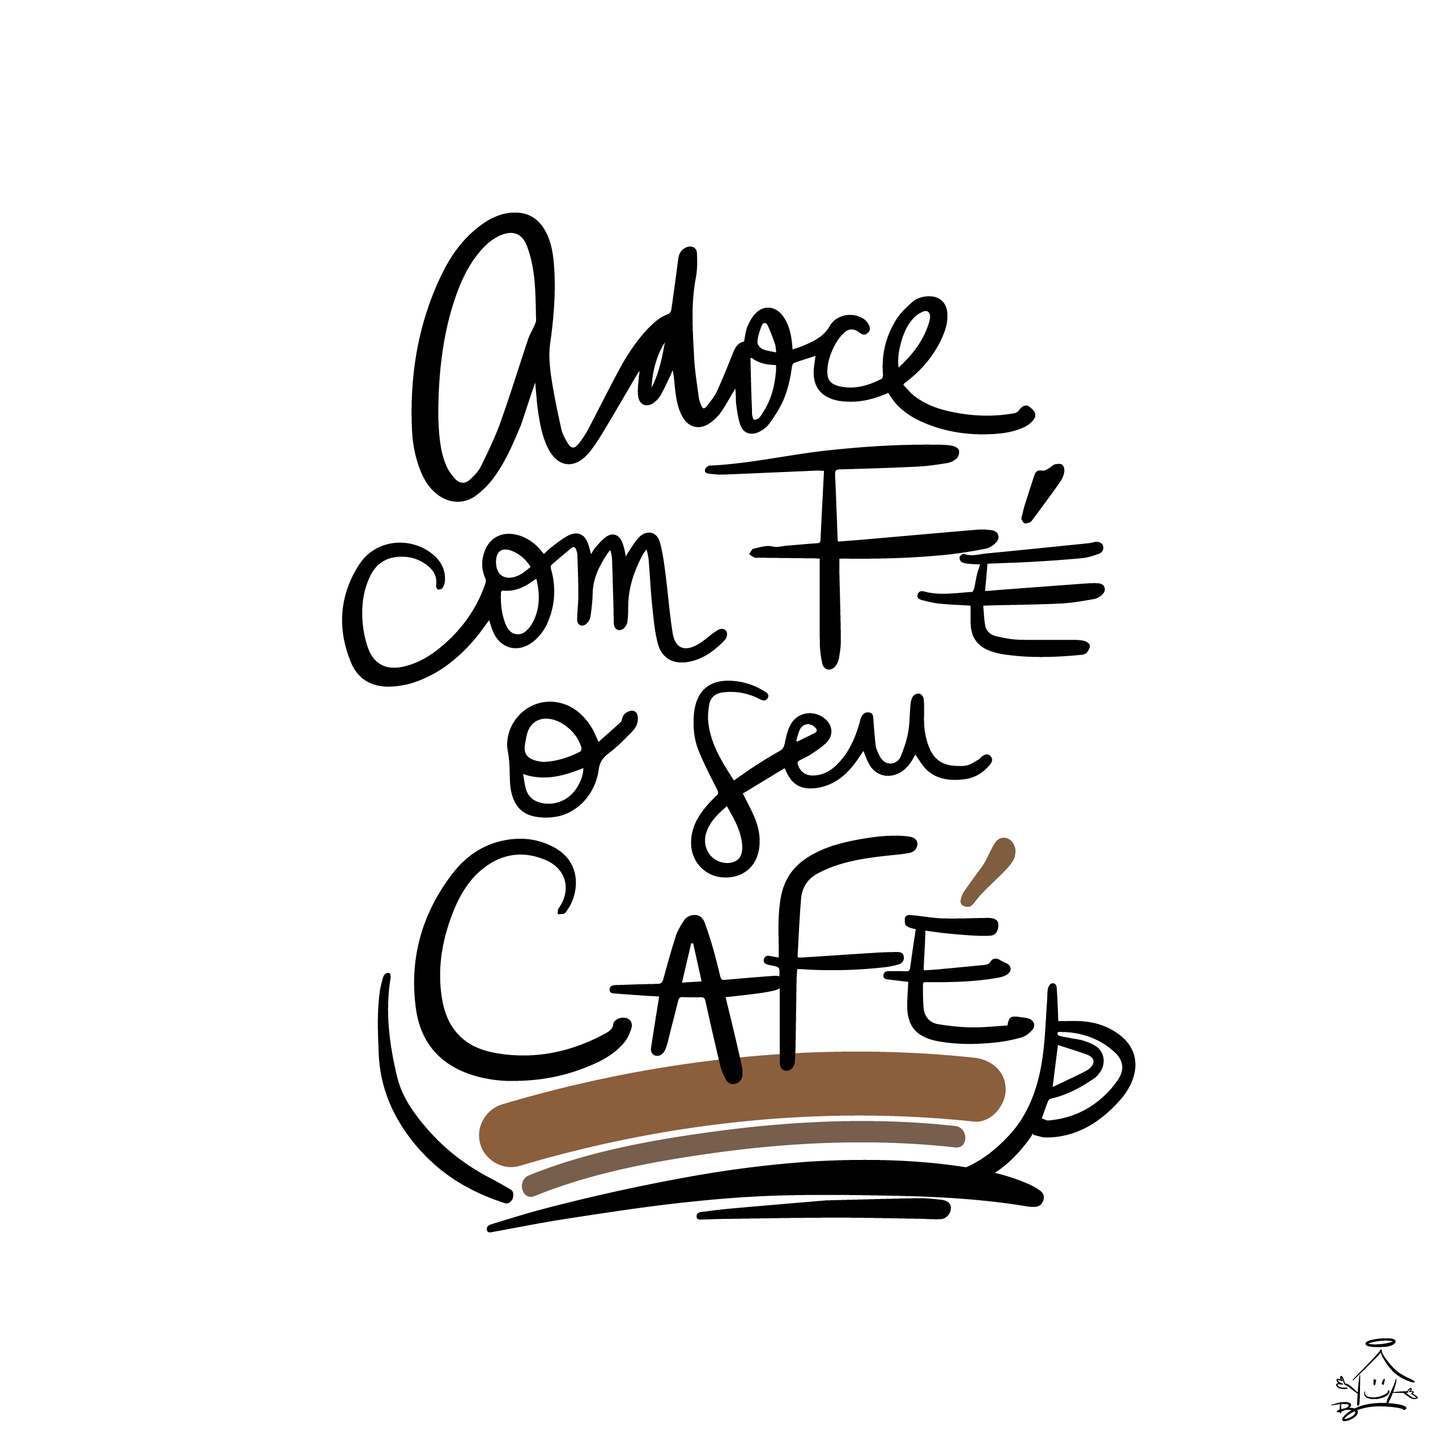 Adoce
com FÉ
o seu
CAFÉ